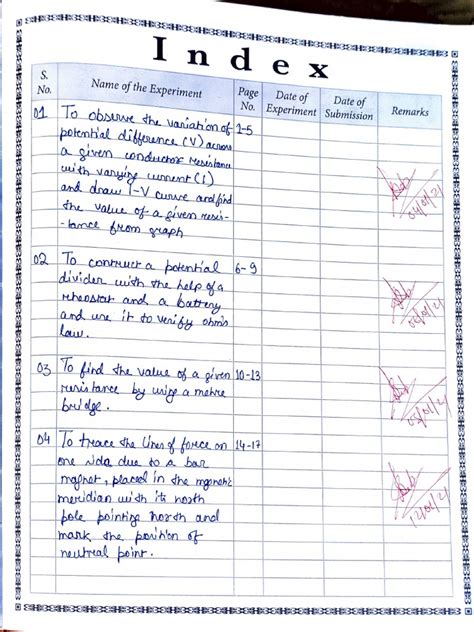 Index
S. No. Name of the Experiment Page No. Date of Experiment Date of Submission Remarks
01 To observe the variation of 1-5
potential difference (V) across
a given conductor resistance
with varying current (I)
and draw I-V curve and find
the value of a given resis-
-tance from graph
04/01/21
02 To contruct a potential 6-9
divider with the help of a
rheostat and a battery
and use it to verify ohm's
law.
03 To find the value of a given 10-13
resistance by using a metre
bridge.
04 To trace the lines of force on 14-17
one side due to a bar
magnet, placed in the magnetic
meridian with its north
pole pointing north and
mark the position of
neutral point.
12/01/21